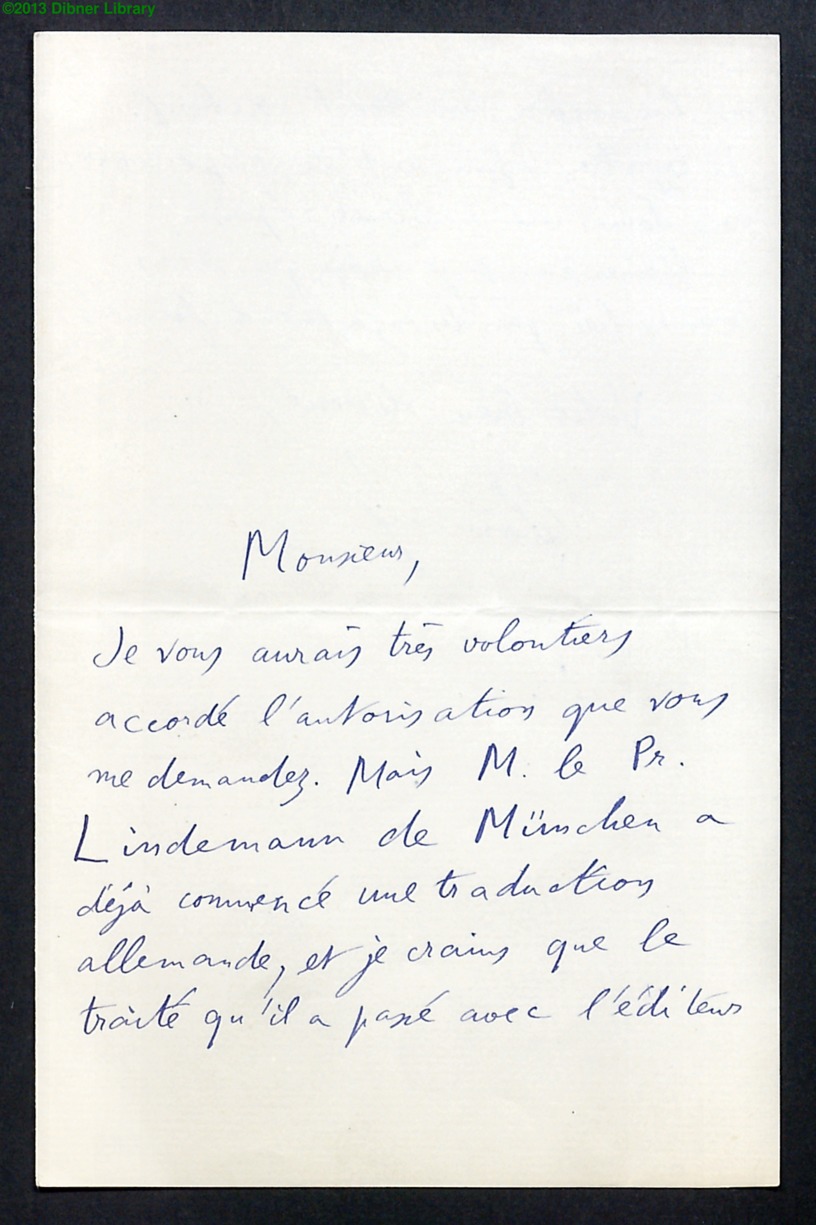 ©2013 Dibner Library
Monsieur,
Je vous aurais très volontiers
accordé l'autorisation que vous
me demandez. Mais M. le Pr.
Lindemann de München a
déjà commencé une traduction
allemande, et je crains que le
traité qu'il a passé avec l'éditeur